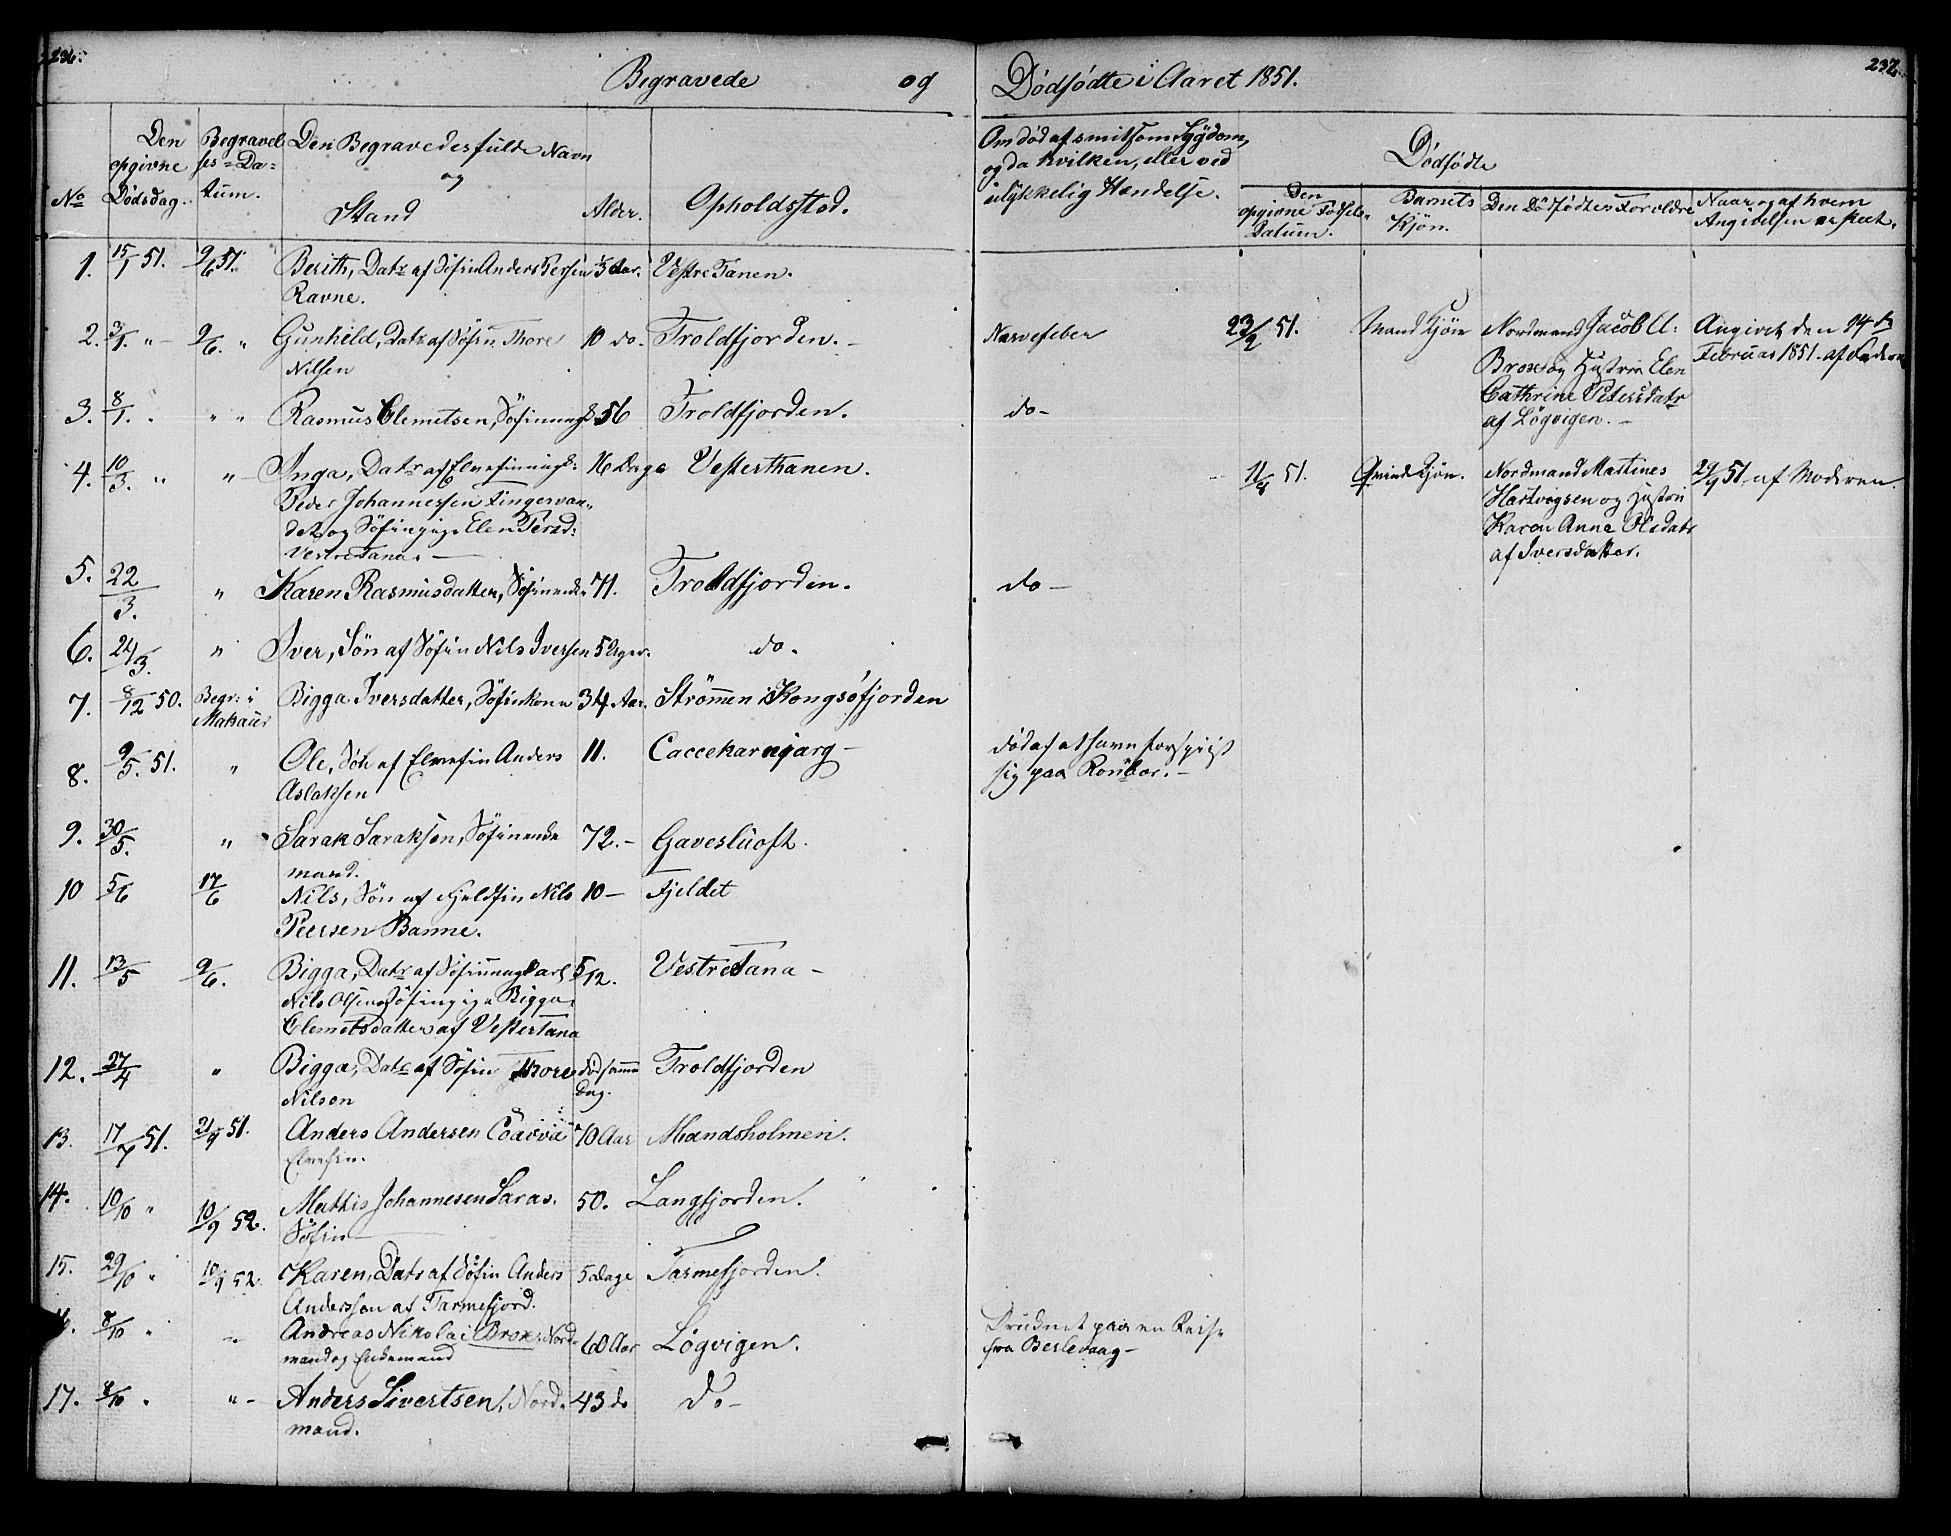 236.
Begravede og Dödfödte i Aaret 1851.
237.
No
Den opgivne Dödsdag.
Begravelses-Datum.
Den Begravedes fulde Navn og Stand
Alder.
Opholdssted.
Om död af smitsom Sygdom, og da hvilken, eller ved ulykkelig Hændelse.
Dödfödte
Den opgivne Födsels Datum.
Barnets Kjön.
Den Dödfödtes Forældre
Naar og af hvem Angivelsen er skeet.
1. 15/1 51. 9/6 51. Berith, Datr af Söfin Anders Persen 1/3 Aar. Vestre Tanen.
Ravne.
2. 3/1. " - 9/6. " Gunhild, Datr af Söfin Thore 10 do. Troldfjorden. - Nervefeber
Nilsen
23/2 51. Mandkjön Nordmand Jacob A: Angivet den 14de
Brox og Hustru Elen Februar 1851 af Faderen
Cathrine Petersdatr
af Lögvigen. -
3. 8/1. " " " Rasmus Clemetsen, Söfinung 56 Troldfjorden. do-
4. 10/3. " " Inga, Datr af Elvefinung 16 Dage Vesterthanen.
Peder Johannessen Fingervan
det og Söfinpige Elen
Vestre Tana. -
11/8 51. Qvindekjön. Nordmand Martines 29/9 51 af Moderen.
Hartvigsen og Hustru
Karen Anna Olsdatr
af Iversdatter.
5. 22/3. " Karen Rasmusdatter, Söfinenke 71. Troldfjorden. do-
6. 24/3. " Iver, Sön af Söfin Nils Iversen 5 Uger. do.
7. 8/12 50. Begr: i Bigga Iversdatter, Söfinkone 34 Aar. Strömmen i Kongsöfjorden
Makaur
8. 9/5. 51. " Ole, Sön af Elvefin Anders 11. Caccekarnjarg -
Aslaksen
död af at have forspiist
sig paa -
9. 30/5. " Sarak Saraksen, Söfinenke 72. - Gavesluoft.
mand.
10 5/6 17/6 Nils, Sön af Fjeldfin Nils 10 - Fjeldet
Peersen Banne.
11. 13/5 9/6. Bigga, Datr af Söfinungkarl 5/12. Vestre Tana -
Nils Olsen og Söfinpige Bigga
Clemetsdatter af Vestertana
12. 27/4 " Bigga, Datr af Söfin Thore död samme Troldfjorden
Nilsen Dag.
13. 17/7 51. 21/9 51. Anders Andersen 10 Aar Mandsholmen.
Elvefin.
14. 10/10 " 10/9 52. Mathis Johannesen Saras. 50. Langfjorden.
Söfin -
15. 29/10 " 10/9 52. Karen, Datr af Söfin Anders 5 Dage Tarmefjorden.
Anderssen af Tarmefjord.
16. 8/10 " " Andreas Nikolai Brox, Nord- 60 Aar Lögvigen.
mand og Enkemand
Druknet paa en Reise
fra Berlevaag -
17. 8/10 " " - Anders Sivertsen, Nord- 43 do do -
mand.